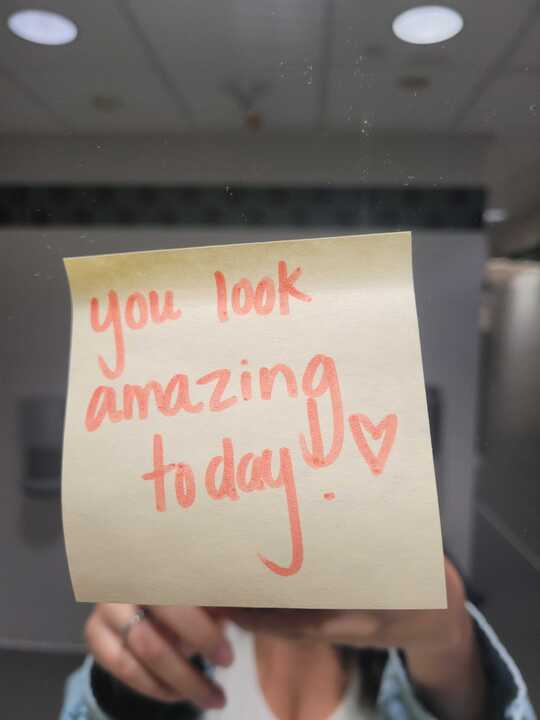 you look
amazing
today! ♡